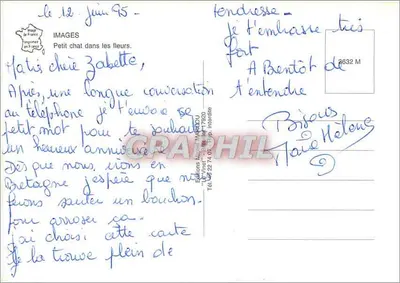 le 12 juin 95.
IMAGES
Petit chat dans les fleurs.
Ma très chère Zabette,
Après, une longue conversation
au téléphone je t'envoie ce
petit mot pour te souhaiter
un heureux anniversaire
Dès que nous irons en
Bretagne j'espère que nous
ferons sauter un bouchon
pour arroser ça
j'ai choisi cette carte
je la trouve plein de
tendresse -
je t'embrasse très
fort
A Bientôt de
t'entendre
Bisous
Marie Hélène
3632 M
GRAPHIL